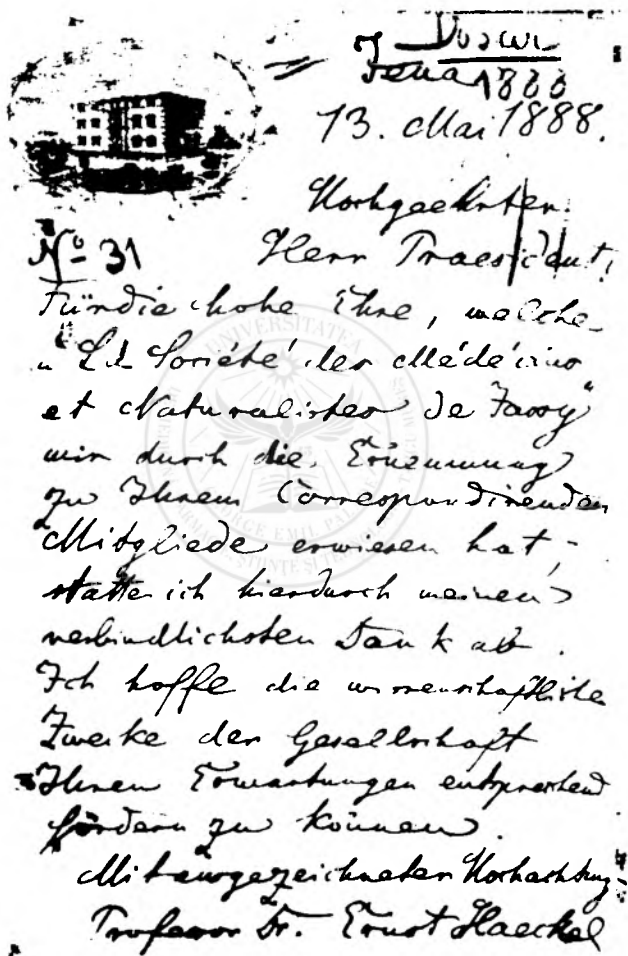 Jena
13. Mai 1888.
Hochgeehrter
Herr Praesident,
No 31
Für die hohe Ehre, welche
„La Société des Médécins
et Naturalistes de Jassy"
mir durch die Ernennung
zu Ihrem Correspondirenden
Mitgliede erwiesen hat,
statte ich hierdurch meinen
verbindlichsten Dank ab.
Ich hoffe die wissenschaftliche
Zwecke der Gesellschaft
Ihren Erwartungen entsprechend
fördern zu können.
Mit ausgezeichneter Hochachtung
Professor Dr. Ernst Haeckel
UNIVERSITATEA
GEORGE EMIL PALADE